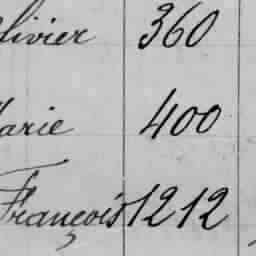 livier 360
arie 400
François 1212